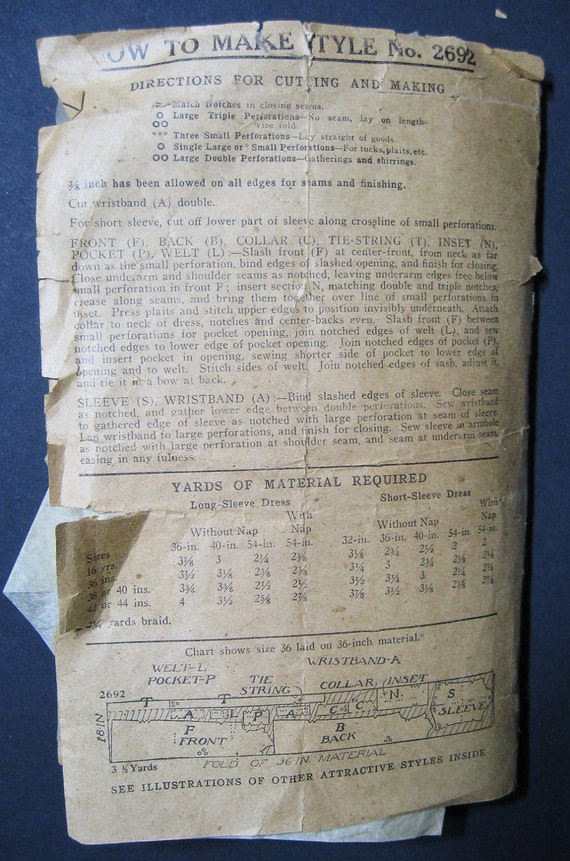 OW TO MAKE STYLE No. 2692
DIRECTIONS FOR CUTTING AND MAKING
Match Notches in closing seams.
Large Triple Perforations—No seam, lay on length-
wise fold.
Three Small Perforations—Lay straight of goods.
Single Large or Small Perforations—For tucks, plaits, etc.
Large Double Perforations—Gatherings and shirrings.
⅜ inch has been allowed on all edges for seams and finishing.
Cut wristband (A) double.
For short sleeve, cut off lower part of sleeve along crossline of small perforations.
FRONT (F), BACK (B), COLLAR (C), TIE-STRING (T), INSET (N),
POCKET (P), WELT (L):—Slash front (F) at center-front, from neck as far
down as the small perforation, bind edges of slashed opening, and finish for closing.
Close underarm and shoulder seams as notched, leaving underarm edges free below
small perforation in front F; insert section N, matching double and triple notches,
crease along seams, and bring them together over line of small perforations in
inset. Press plaits and stitch upper edges to position invisibly underneath. Attach
collar to neck of dress, notches and center-backs even. Slash front (F) between
small perforations for pocket opening, join notched edges of welt (L), and sew
notched edges to lower edge of pocket opening. Join notched edges of pocket (P),
and insert pocket in opening, sewing shorter side of pocket to lower edge of
opening and to welt. Stitch sides of welt. Join notched edges of sash, adjust it,
and tie it in a bow at back.
SLEEVE (S), WRISTBAND (A):—Bind slashed edges of sleeve. Close seam
as notched, and gather lower edge between double perforations. Sew wristband
to gathered edge of sleeve as notched with large perforation at seam of sleeve.
Lap wristband to large perforations, and finish for closing. Sew sleeve in armhole
as notched with large perforation at shoulder seam, and seam at underarm seam,
easing in any fulness.
YARDS OF MATERIAL REQUIRED
Long-Sleeve Dress Short-Sleeve Dress
With With
Without Nap Nap Without Nap Nap
Sizes 36-in. 40-in. 54-in. 54-in. 32-in. 36-in. 40-in. 54-in. 54-in.
16 yrs. 3⅛ 3 2¼ 2⅜ 3⅛ 2¾ 2½ 2 2
36 ins. 3½ 3⅛ 2⅜
38 or 40 ins. 3¾ 3⅜ 2½ 2½
42 or 44 ins. 4 3½ 2⅝ 2⅞ 3⅞ 3½
yards braid.
Chart shows size 36 laid on 36-inch material.
WELT-L WRISTBAND-A
POCKET-P TIE STRING COLLAR INSET
2692 T T N
A L P A C C S SLEEVE
18 IN F FRONT B BACK
3 ½ Yards FOLD OF 36 IN MATERIAL
SEE ILLUSTRATIONS OF OTHER ATTRACTIVE STYLES INSIDE